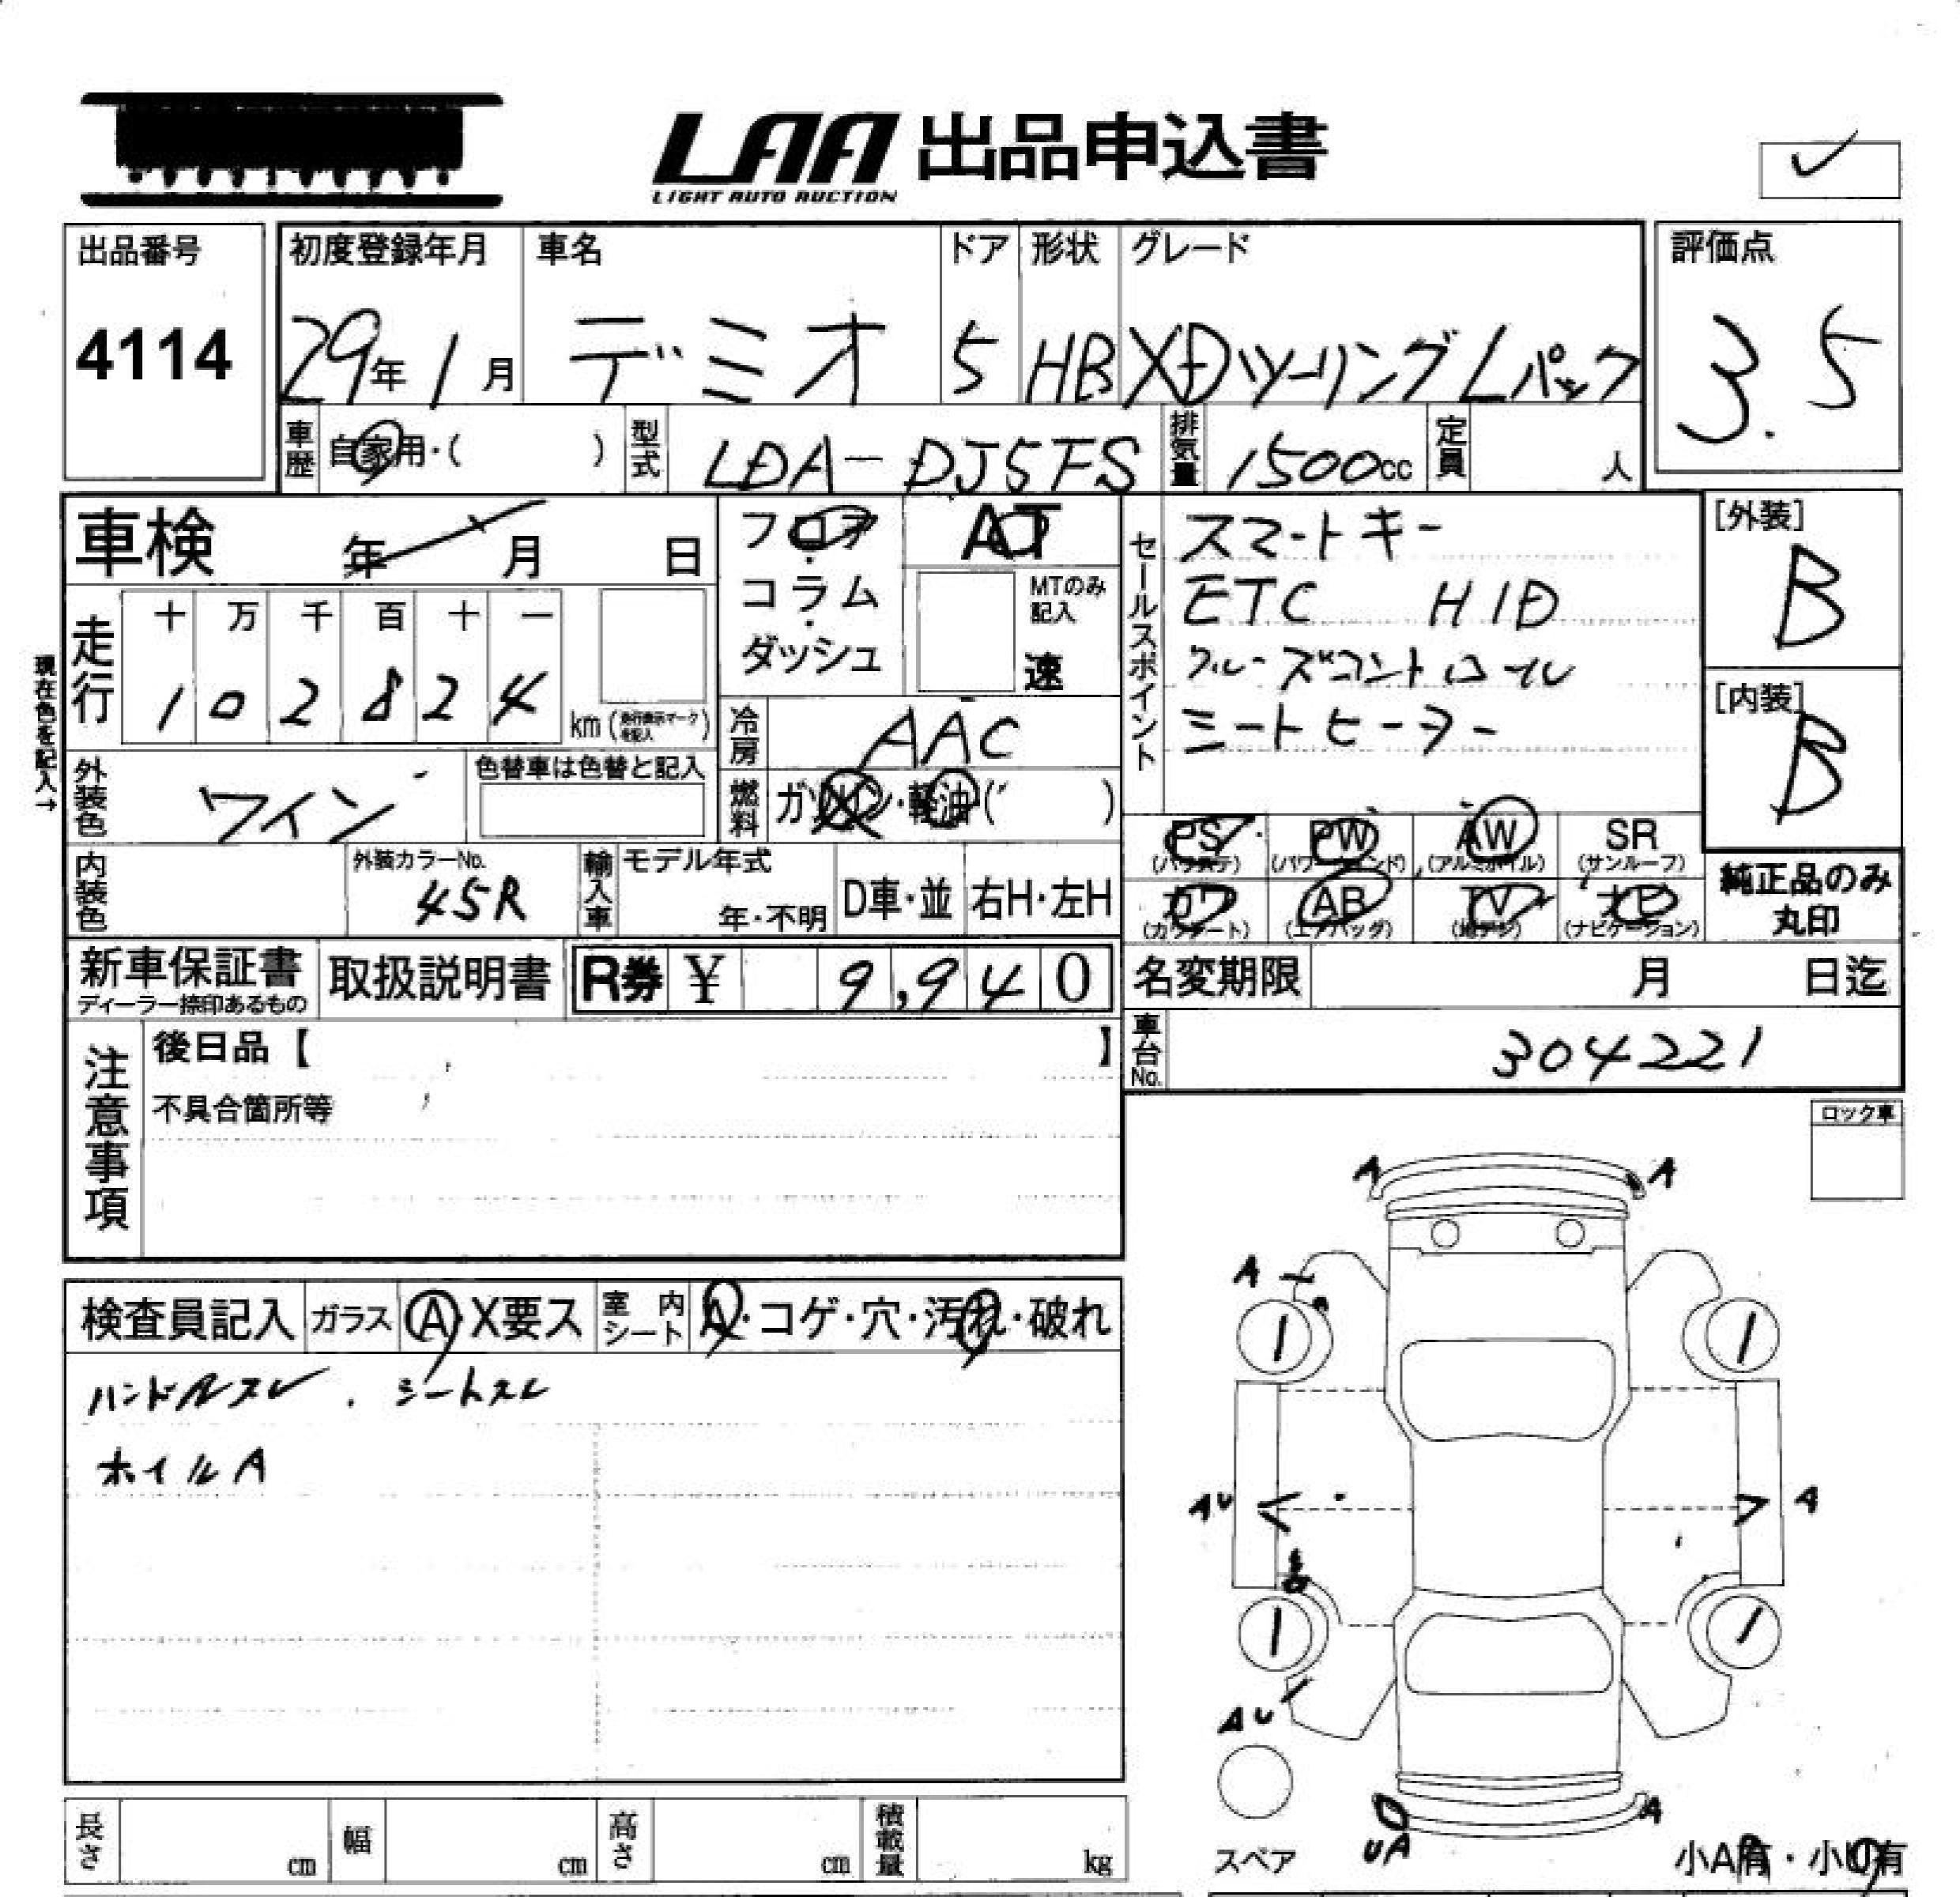 LAA 出品申込書
LIGHT AUTO AUCTION
出品番号
4114
初度登録年月
29年1月
車名
デミオ
ドア
5
形状
HB
グレード
XDツーリングLパック
評価点
3.5
車歴 自家用・( )
型式 LDA-DJ5FS
排気量 1500cc
定員 人
車検 年 月 日
フロア・コラム・ダッシュ
AT
MTのみ記入
速
セールスポイント
スマートキー
ETC HID
クルーズコントロール
シートヒーター
[外装]
B
[内装]
B
現在色を記入→
走行
十 万 千 百 十 一
1 0 2 8 2 4
km (走行表示マークを記入)
冷房 AAC
外装色 ワイン
色替車は色替と記入
燃料 ガソリン・軽油・( )
PS (パワステ)
PW (パワーウィンド)
AW (アルミホイル)
SR (サンルーフ)
カワ (カワシート)
AB (エアバッグ)
TV (地デジ)
ナビ (ナビゲーション)
純正品のみ
丸印
内装色
外装カラーNo.
45R
輸入車
モデル年式
年・不明
D車・並
右H・左H
新車保証書
ディーラー捺印あるもの
取扱説明書
R券 ¥ 9,940
名変期限 月 日迄
車台No. 304221
注意事項
後日品【 】
不具合箇所等
ロック車
検査員記入
ガラス A・X要ス
室内シート A・コゲ・穴・汚れ・破れ
ハンドルスレ . シートスレ
ホイルA
A A
A
1 1
AU A
1 1
AU
スペア
UA A
小A有・小U有
長さ cm
幅 cm
高さ cm
積載量 kg